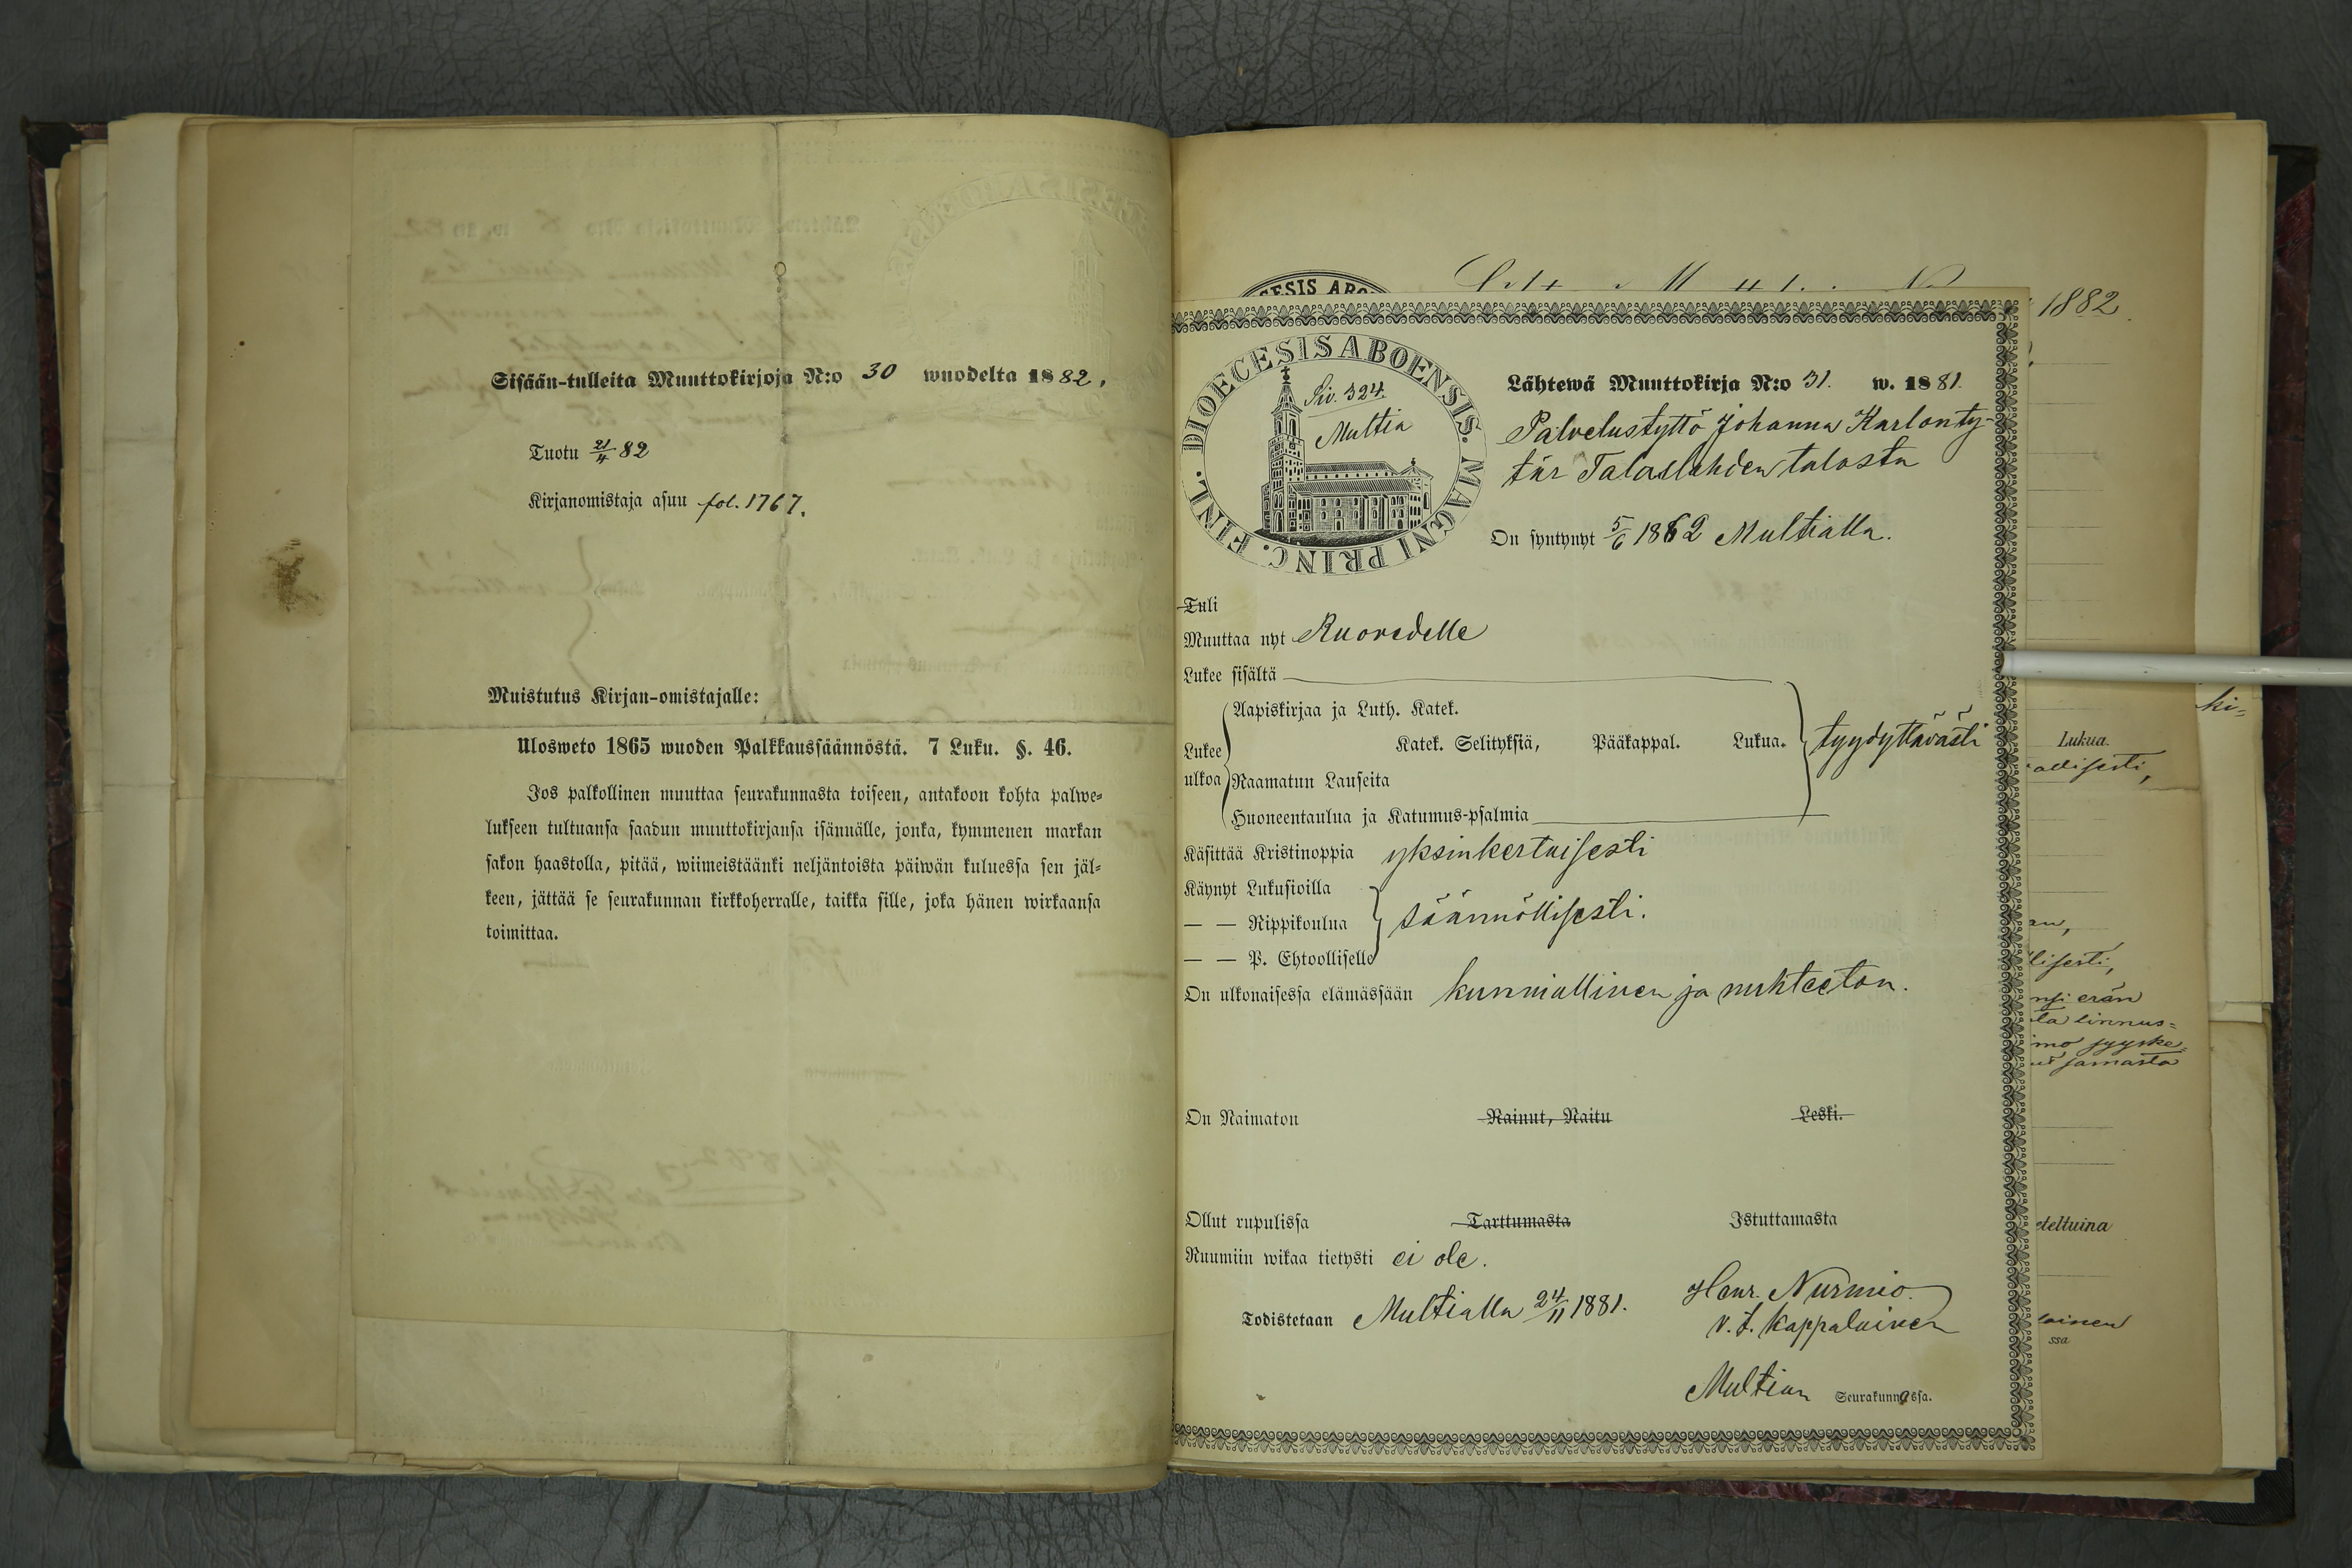 Sisään-tulleita Muuttokirjoja N:o 30 wuodelta 1882.
Tuotu 21/4 82
Kirjanomistaja asuu fol. 1767.
Muistutus Kirjan-omistajalle:
Ulosweto 1865 wuoden Palkkaussäännöstä. 7 Luku. §. 46.
Jos palkollinen muuttaa seurakunnasta toiseen, antakoon kohta palwe-
lukseen tultuansa saadun muuttokirjansa isännälle, jonka, kymmenen markan
sakon haastolla, pitää, wiimeistäänki neljäntoista päiwän kuluessa sen jäl-
keen, jättää se seurakunnan kirkkoherralle, taikka sille, joka hänen wirkaansa
toimittaa.
1882
DIOECESIS ABOENSIS. MAGNI PRINC. FINL.
Siv. 324.
Multia
Lähtewä Muuttokirja N:o 31. w. 1881.
Palvelustyttö Johanna Karlonty-
tär Talaslahden talosta
On syntynyt 5/6 1862 Multialla.
Tuli
Muuttaa nyt Ruovedelle
Lukee sisältä
Lukee ulkoa
Aapiskirjaa ja Luth. Katek.
Katek. Selityksiä, Pääkappal. Lukua. tyydyttävästi
Raamatun Lauseita
Huoneentaulua ja Katumus-psalmia
Käsittää Kristinoppia yksinkertaisesti
Käynyt Lukusioilla
— — Rippikoulua säännöllisesti.
— — P. Ehtoolliselle
On ulkonaisessa elämässään kunniallinen ja nuhteeton.
On Naimaton Nainut, Naitu Leski.
Ollut rupulissa Tarttumasta Istuttamasta
Ruumiin wikaa tietysti ei ole.
Todistetaan Multialla 24/11 1881.
Henr. Nurmio
v. t. kappalainen
Multian Seurakunnassa.
ki-
Lukua.
nsi erän
la linnus-
jamasta
eteltuina
lainen
ssa